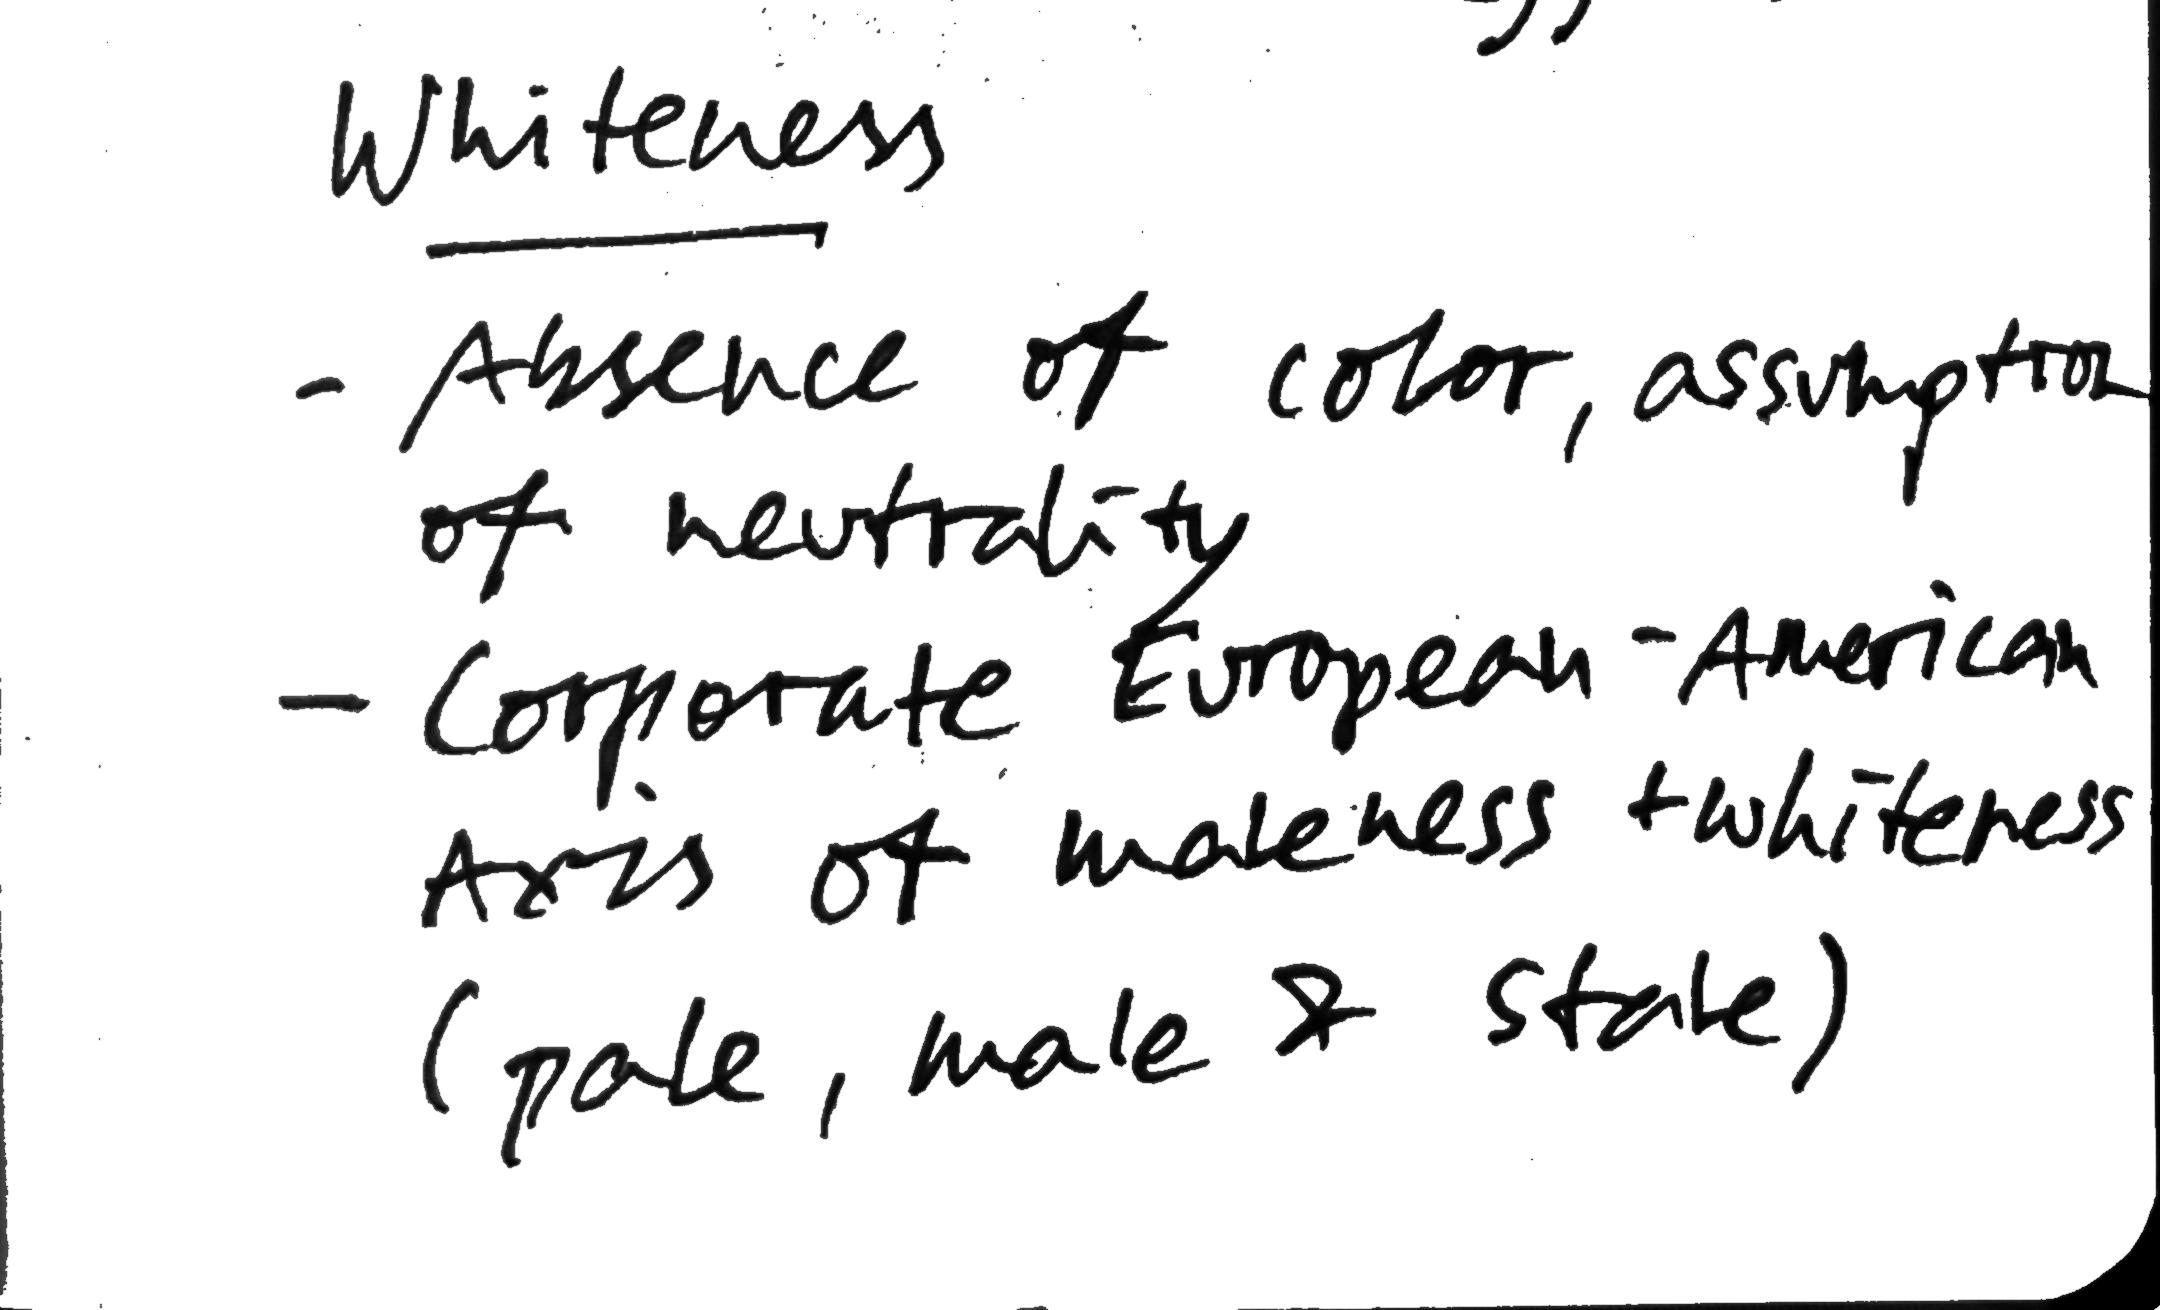 Whiteness
- Absence of color, assumption
of neutrality
- Corporate European-American
Axis of maleness + whiteness
(pale, male & stale)